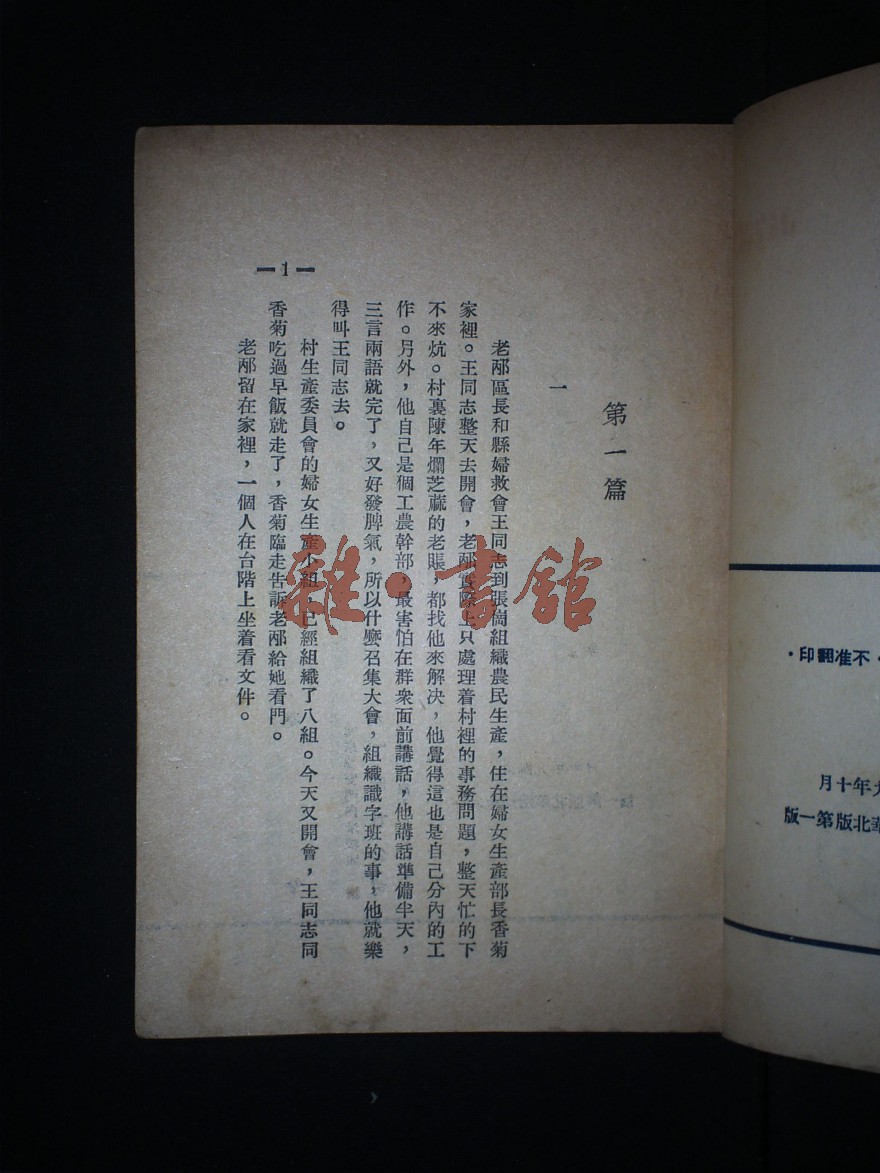 不准翻印·
年十月
北版第一版
第一篇
一
老邴區長和縣婦救會王同志到張崗組織農民生產，住在婦女生產部長香菊
家裡。王同志整天去開會，老邴實際上只處理着村裡的事務問題，整天忙的下
不來炕。村裏陳年爛芝蔴的老賬，都找他來解决，他覺得這也是自己分內的工
作。另外，他自己是個工農幹部，最害怕在群衆面前講話，他講話準備半天，
三言兩語就完了，又好發脾氣，所以什麼召集大會，組織識字班的事，他就樂
得叫王同志去。
村生產委員會的婦女生產小組，已經組織了八組。今天又開會，王同志同
香菊吃過早飯就走了，香菊臨走告訴老邴給她看門。
老邴留在家裡，一個人在台階上坐着看文件。
—1—
雜·書館